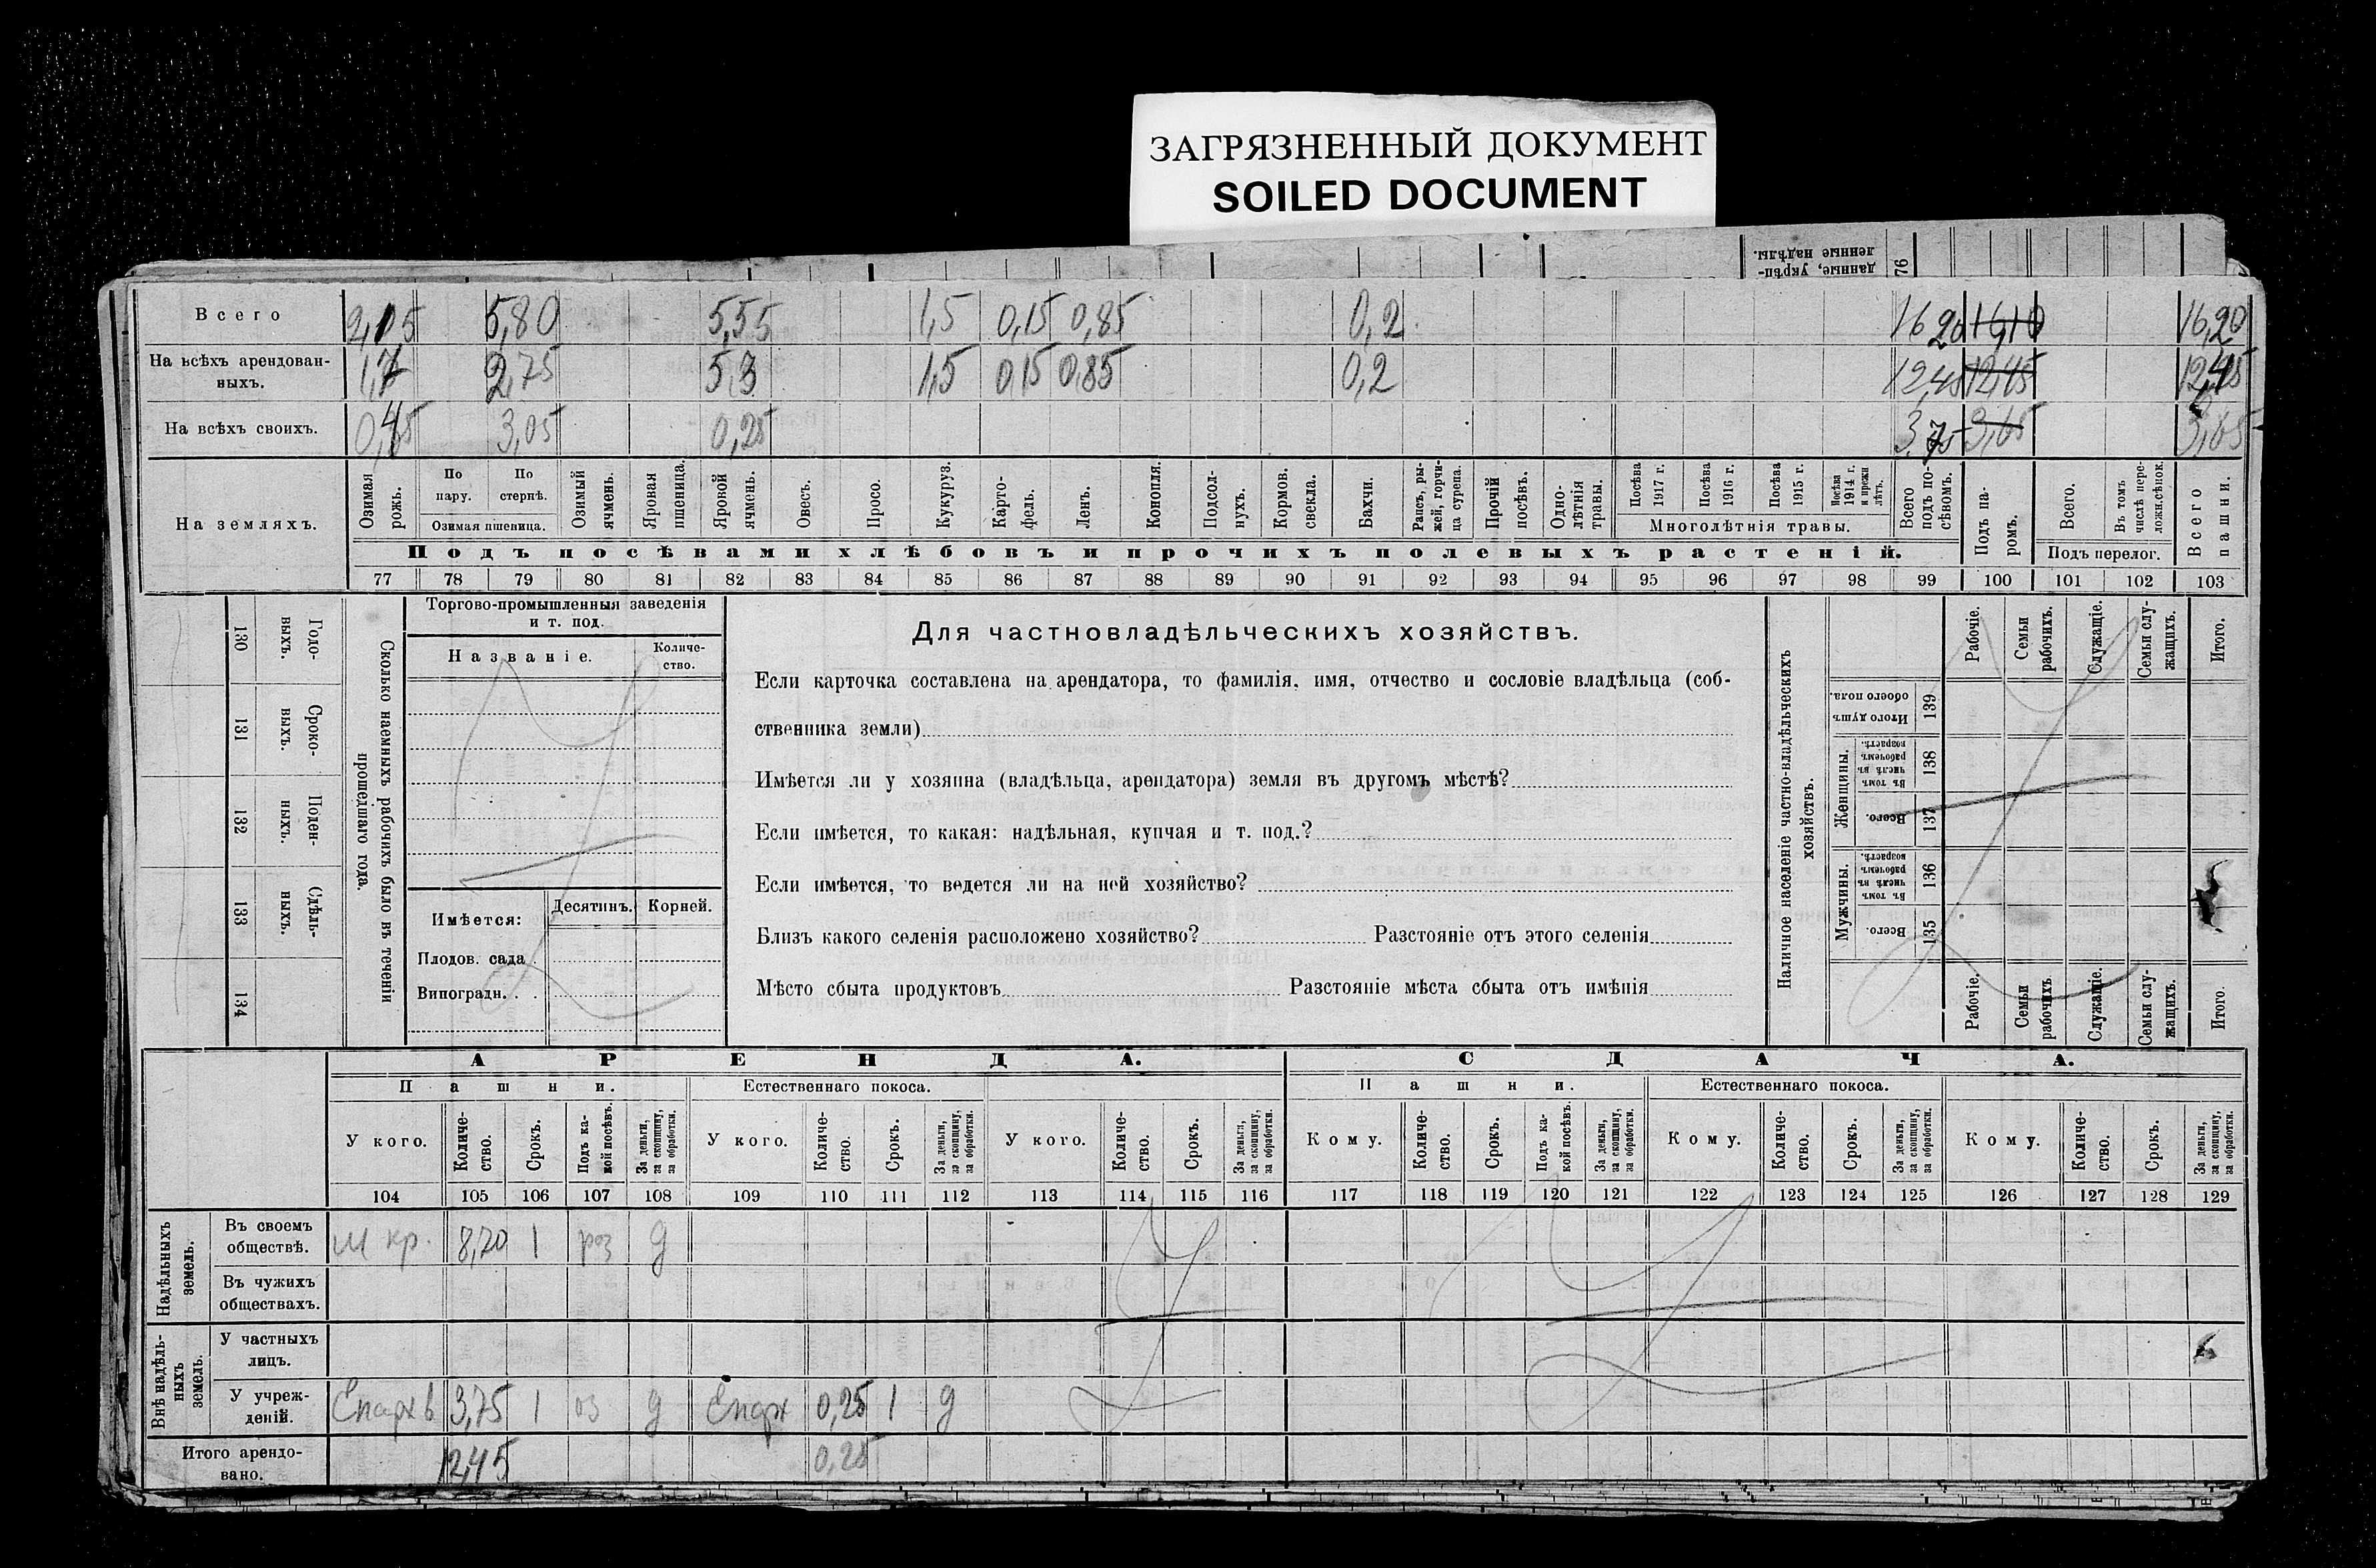 ЗАГРЯЗНЕННЫЙ ДОКУМЕНТ
SOILED DOCUMENT
данные, укрѣп-
ленные надѣлы.
76
Всего 5,80 5,55 1,5 0,15 0,85 0,2 16,20 16,10 16,20
На всѣхъ арендован-
ныхъ. 1,7 2,75 5,3 1,5 0,15 0,85 0,2 12,45 12,45 12,45
На всѣхъ своихъ. 3,05 0,25 3,65
На земляхъ.
Озимая рожь.
По пару.
По стернѣ.
Озимая пшеница.
Озимый ячмень.
Яровая пшеница.
Яровой ячмень.
Овесъ.
Просо.
Кукуруз.
Карто-фель.
Ленъ.
Конопля.
Подсол-нухъ.
Кормов. свекла.
Бахчи.
Рапсъ, ры-жей, горчи-ца сурепа.
Прочій посѣвъ.
Одно-лѣтнія травы.
Посѣва 1917 г.
Посѣва 1916 г.
Посѣва 1915 г.
Посѣва 1914 г. и прежн лѣтъ.
Многолѣтнія травы.
Всего подъ по-сѣвомъ.
Подъ па-ромъ.
Всего.
Въ томъ числѣ пере-ложн.сѣнок.
Подъ перелог.
Всего пашни.
Подъ посѣвами хлѣбовъ и прочихъ полевыхъ растеній.
77 78 79 80 81 82 83 84 85 86 87 88 89 90 91 92 93 94 95 96 97 98 99 100 101 102 103
130 Годо-выхъ.
131 Сроко-выхъ.
132 Поден-ныхъ.
133 Сдѣль-ныхъ.
134
Сколько наемныхъ рабочихъ было въ теченіи
прошедшаго года.
Торгово-промышленныя заведенія
и т. под.
Названіе.
Количе-ство.
Имѣется:
Десятинъ. Корней.
Плодов. сада .
Виноградн. . .
Для частновладѣльческихъ хозяйствъ.
Если карточка составлена на арендатора, то фамилія, имя, отчество и сословіе владѣльца (соб-
ственника земли)
Имѣется ли у хозяина (владѣльца, арендатора) земля въ другомъ мѣстѣ?
Если имѣется, то какая: надѣльная, купчая и т. под.?
Если имѣется, то ведется ли на ней хозяйство?
Близъ какого селенія расположено хозяйство? Разстояніе отъ этого селенія
Мѣсто сбыта продуктовъ Разстояніе мѣста сбыта отъ имѣнія
Наличное населеніе частно-владѣльческихъ
хозяйствъ.
Рабочіе.
Семьи рабочихъ.
Служащіе.
Семьи слу-жащихъ.
Итого.
Итого душъ обоего пола. 139
Женщины.
Въ томъ числѣ въ рабочемъ возрастѣ. 138
Всего. 137
Мужчины.
Въ томъ числѣ въ рабочемъ возрастѣ. 136
Всего. 135
Рабочіе.
Семьи рабочихъ
Служащіе.
Семьи слу-жащихъ.
Итого.
АРЕНДА. СДАЧА.
Пашни. Естественнаго покоса. Пашни. Естественнаго покоса.
У кого.
Количе-ство.
Срокъ.
Подъ ка-кой посѣвъ.
За деньги, за скопщину, за обработки.
У кого.
Количе-ство.
Срокъ.
За деньги, за скопщину, за обработки.
У кого.
Количе-ство.
Срокъ.
За деньги, за скопщину, за обработки.
Кому.
Количе-ство.
Срокъ.
Подъ ка-кой посѣвъ.
За деньги, за скопщину, за обработки.
Кому.
Количе-ство.
Срокъ.
За деньги, за скопщину, за обработки.
Кому.
Количе-ство.
Срокъ.
За деньги, за скопщину, за обработки.
104 105 106 107 108 109 110 111 112 113 114 115 116 117 118 119 120 121 122 123 124 125 126 127 128 129
Надѣльныхъ земель.
Въ своемъ
обществѣ. кр. 8,70 1 роз д
Въ чужихъ
обществахъ.
Внѣ надѣль-ныхъ земель.
У частныхъ
лицъ.
У учреж-
деній. 3,75 1 оз д Епарх 0,25 1 д
Итого арендо-
вано. 12,45 0,25